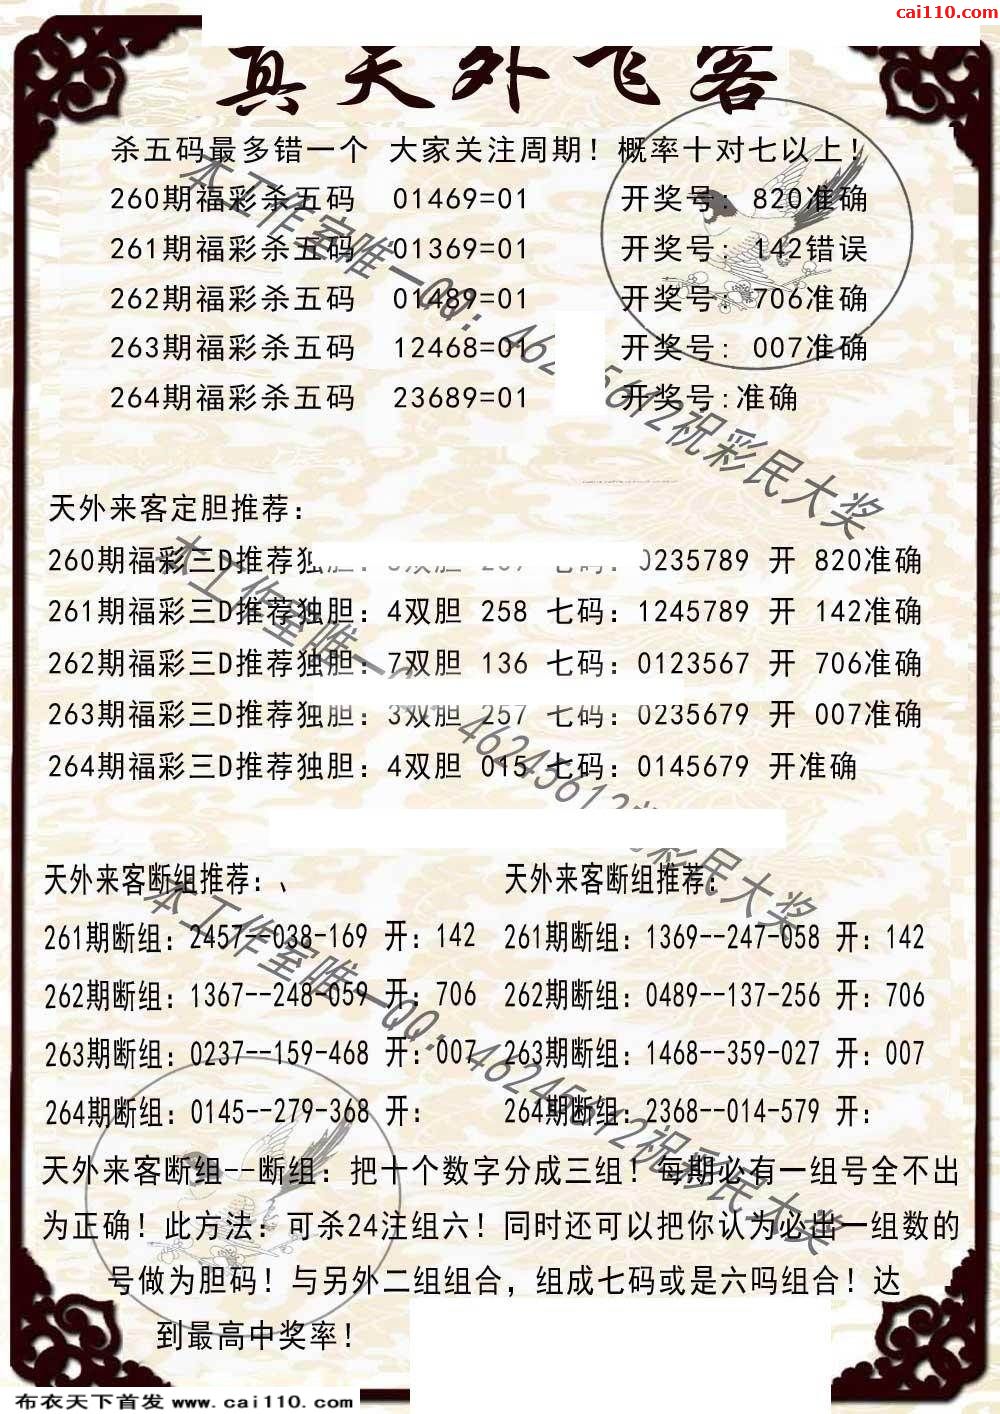 cai110.com
真天外飞客
杀五码最多错一个 大家关注周期！概率十对七以上！
260期福彩杀五码 01469=01 开奖号: 820准确
261期福彩杀五码 01369=01 开奖号: 142错误
262期福彩杀五码 01489=01 开奖号: 706准确
263期福彩杀五码 12468=01 开奖号: 007准确
264期福彩杀五码 23689=01 开奖号:准确
本工作室唯一QQ：46245612祝彩民大奖
天外来客定胆推荐：
260期福彩三D推荐独胆： 双胆 七码：0235789 开 820准确
261期福彩三D推荐独胆：4双胆 258 七码：1245789 开 142准确
262期福彩三D推荐独胆：7双胆 136 七码：0123567 开 706准确
263期福彩三D推荐独胆：3双胆 257 七码：0235679 开 007准确
264期福彩三D推荐独胆：4双胆 015 七码：0145679 开准确
本工作室唯一QQ：46245612祝彩民大奖
天外来客断组推荐：、 天外来客断组推荐：
261期断组：2457--038-169 开：142 261期断组：1369--247-058 开：142
262期断组：1367--248-059 开：706 262期断组：0489--137-256 开：706
263期断组：0237--159-468 开：007 263期断组：1468--359-027 开：007
264期断组：0145--279-368 开： 264期断组：2368--014-579 开：
本工作室唯一QQ：46245612祝彩民大奖
天外来客断组--断组：把十个数字分成三组！每期必有一组号全不出
为正确！此方法：可杀24注组六！同时还可以把你认为必出一组数的
号做为胆码！与另外二组组合，组成七码或是六吗组合！达
到最高中奖率！
布衣天下首发 www.cai110.com